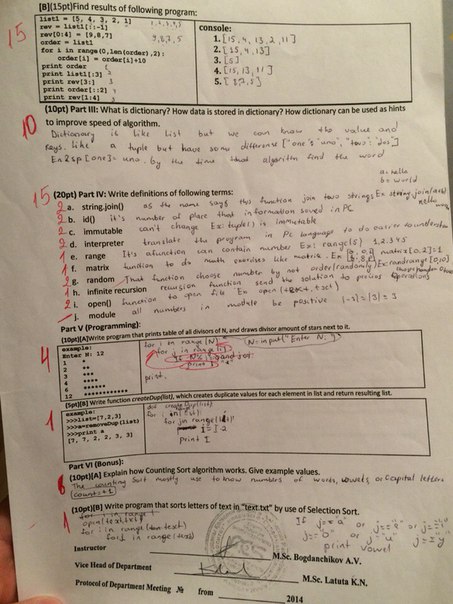 [B](15pt)Find results of following program:
15
list1= [5, 4, 3, 2, 1]
rev = list1[::-1]
rev[0:4] = [9,8,7]
order = list1
for i in range(0,len(order),2):
order[i] = order[i]+10
print order
print list1[:3]
print rev[3:]
print order[::2]
print rev[1:4]
console:
1. [15, 4, 13, 2, 11]
2. [15, 4, 13]
3. [5]
4. [15, 13, 11]
5. [8, 7, 5]
10
(10pt) Part III: What is dictionary? How data is stored in dictionary? How dictionary can be used as hints
to improve speed of algorithm.
Dictionary is like List but we can know the value and
keys. Like a tuple but have some difference ["one": uno, "two": dos]
En2sp [one]= uno. by the time that algorithm find the word
a=hello
b=world
15
(20pt) Part IV: Write definitions of following terms:
2 a. string.join() as the name says this function join two strings Ex string.join(a,b)
hello world
2 b. id() it's number of place that information saved in PC
2 c. immutable can't change Ex: tuple() is immutable
2 d. interpreter translate the program in PC language to do easier to understand
1 e. range It's a function can contain number Ex: range(5) 1,2,3,4,5
1 f. matrix function to do math exercises like matrix.
2 g. random That function choose number by not order (randomly)
1 h. infinite recursion recursion function send the solution to previous operations
2 i. open() function to open file Ex open(+BK+.txt)
j. module all numbers in module be positive |-3|=|3|=3
Part V (Programming):
4
(10pt)[A]Write program that prints table of all divisors of N, and draws divisor amount of stars next to it.
example:
Enter N: 12
1 *
2 **
3 ***
4 ****
6 ******
12 ************
for i in range (N) (N=input("Enter N:")
for j in range
print
print
(5pt)[B] Write function createDup(list), which creates duplicate values for each element in list and return resulting list.
1
example:
>>>list=[7,2,3]
>>>a=removeDup(list)
>>>print a
[7, 7, 2, 2, 3, 3]
def createDup(list)
for i in list:
for j in range
i=I·2
print I
Part VI (Bonus):
(10pt)[A] Explain how Counting Sort algorithm works. Give example values.
The counting Sort mostly use to know numbers of words, vowels, or capital letters
count=+1
1
(10pt)[B] Write program that sorts letters of text in "text.txt" by use of Selection Sort.
for i in range
open(text.txt)
for i in range (len text)
for j in range (text)
If j=="a" or j=="e" or
j=="o" or j=="u"
print vowel
Instructor
M.Sc. Bogdanchikov A.V.
Vice Head of Department
M.Sc. Latuta K.N.
Protocol of Department Meeting № from 2014